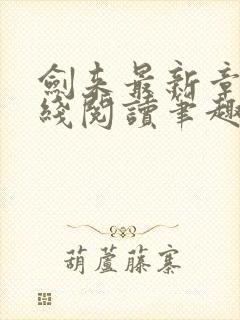 劍来最新章
綫閱讀筆趣
葫蘆藤寨